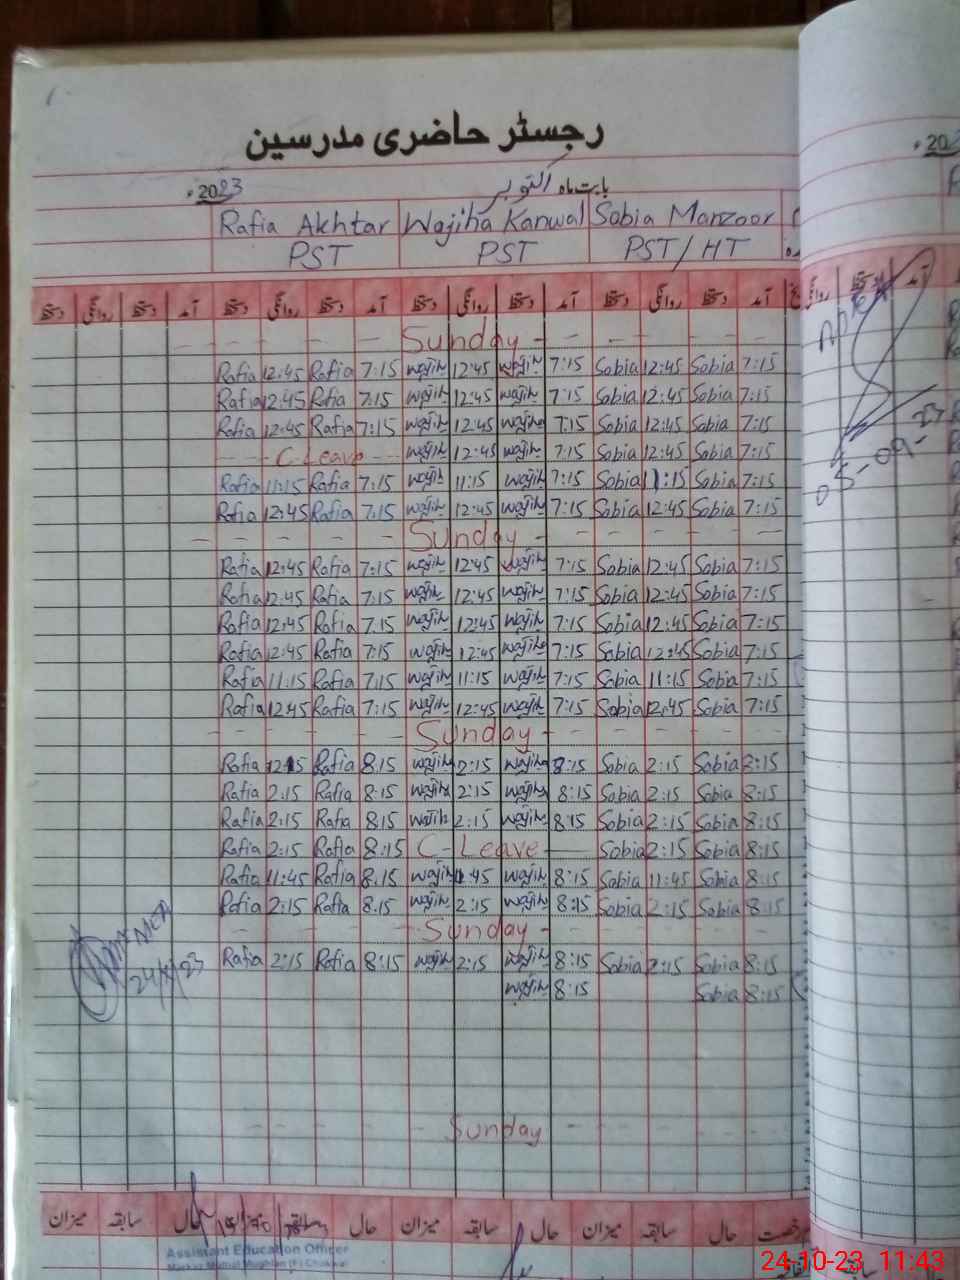 رجسٹر حاضری مدرسین
بابت ماہ اکتوبر 2023ء
Rafia Akhtar Wajiha Kanwal Sobia Manzoor
PST PST PST/HT
آمد دستخط روانگی دستخط آمد دستخط روانگی دستخط آمد دستخط روانگی دستخط آمد دستخط روانگی دستخط
Sunday
Rafia 12:45 Rafia 7:15 wajiha 12:45 wajiha 7:15 Sobia 12:45 Sobia 7:15
Rafia 12:45 Rafia 7:15 wajiha 12:45 wajiha 7:15 Sobia 12:45 Sobia 7:15
Rafia 12:45 Rafia 7:15 wajiha 12:45 wajiha 7:15 Sobia 12:45 Sobia 7:15
C-Leave wajiha 12:45 wajiha 7:15 Sobia 12:45 Sobia 7:15
Rafia 11:15 Rafia 7:15 wajiha 11:15 wajiha 7:15 Sobia 11:15 Sobia 7:15
Rafia 12:45 Rafia 7:15 wajiha 12:45 wajiha 7:15 Sobia 12:45 Sobia 7:15
Sunday
Rafia 12:45 Rafia 7:15 wajiha 12:45 wajiha 7:15 Sobia 12:45 Sobia 7:15
Rafia 12:45 Rafia 7:15 wajiha 12:45 wajiha 7:15 Sobia 12:45 Sobia 7:15
Rafia 12:45 Rafia 7:15 wajiha 12:45 wajiha 7:15 Sobia 12:45 Sobia 7:15
Rafia 12:45 Rafia 7:15 wajiha 12:45 wajiha 7:15 Sobia 12:45 Sobia 7:15
Rafia 11:15 Rafia 7:15 wajiha 11:15 wajiha 7:15 Sobia 11:15 Sobia 7:15
Rafia 12:45 Rafia 7:15 wajiha 12:45 wajiha 7:15 Sobia 12:45 Sobia 7:15
Sunday
Rafia Rafia 8:15 wajiha 2:15 wajiha 8:15 Sobia 2:15 Sobia 8:15
Rafia 2:15 Rafia 8:15 wajiha 2:15 wajiha 8:15 Sobia 2:15 Sobia 8:15
Rafia 2:15 Rafia 8:15 wajiha 2:15 wajiha 8:15 Sobia 2:15 Sobia 8:15
Rafia 2:15 Rafia 8:15 C-Leave Sobia 2:15 Sobia 8:15
Rafia 11:45 Rafia 8:15 wajiha 11:45 wajiha 8:15 Sobia 11:45 Sobia 8:15
Rafia 2:15 Rafia 8:15 wajiha 2:15 wajiha 8:15 Sobia 2:15 Sobia 8:15
Sunday
Rafia 2:15 Rafia 8:15 wajiha 2:15 wajiha 8:15 Sobia 2:15 Sobia 8:15
wajiha 8:15 Sobia 8:15
Sunday
رخصت حال سابقہ میزان حال سابقہ میزان حال سابقہ میزان حال سابقہ میزان
Assistant Education Officer
05-09-23
24-10-23 11:43